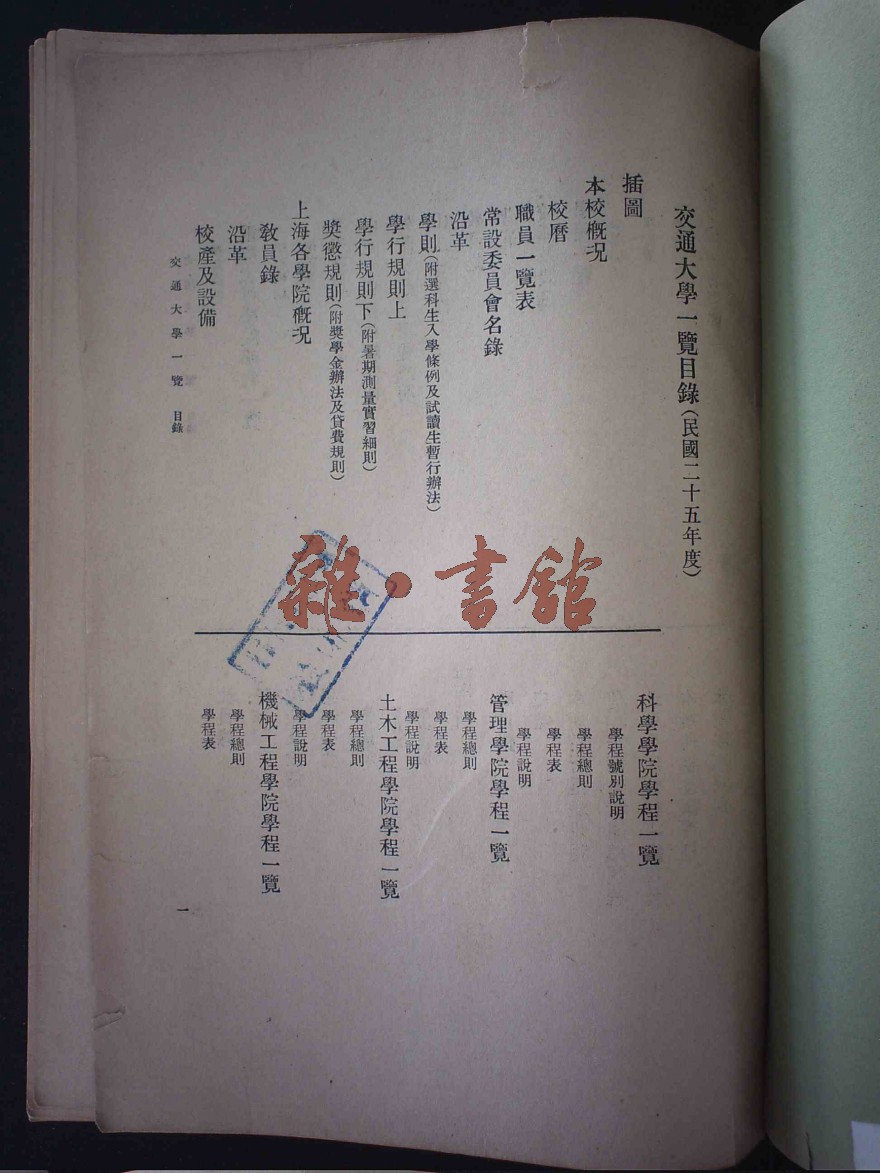 交通大學一覽目錄(民國二十五年度)
插圖
本校概況
校曆
職員一覽表
常設委員會名錄
沿革
學則(附選科生入學條例及試讀生暫行辦法)
學行規則上
學行規則下(附暑期測量實習細則)
獎懲規則(附獎學金辦法及貸費規則)
上海各學院概況
教員錄
沿革
校產及設備
科學學院學程一覽
學程號別說明
學程總則
學程表
學程說明
管理學院學程一覽
學程總則
學程表
學程說明
土木工程學院學程一覽
學程總則
學程表
學程說明
機械工程學院學程一覽
學程總則
學程表
交通大學一覽 目錄
一
雜·書館